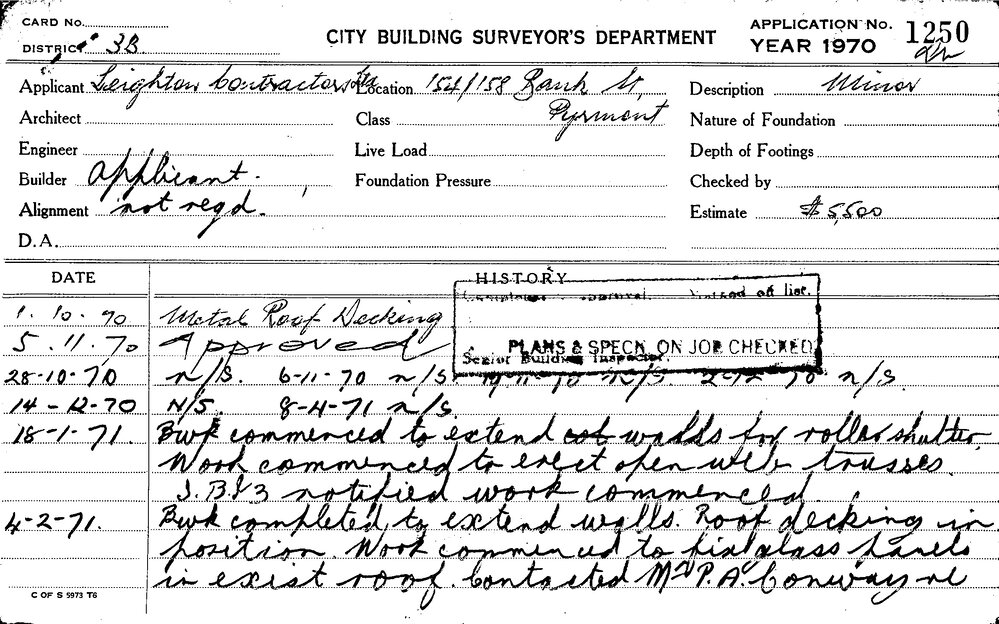 CARD No.
DISTRICT 3B
CITY BUILDING SURVEYOR'S DEPARTMENT
APPLICATION No. 1250
YEAR 1970
Applicant Leighton Contractors Location 154/158 Bank St, Description Minor
Architect Class Pyrmont Nature of Foundation
Engineer Live Load Depth of Footings
Builder Applicant. Foundation Pressure Checked by
Alignment not regd. Estimate $5,500
D.A.
DATE HISTORY
off list.
1.10.70 Metal Roof Decking
5.11.70 Approved
PLANS & SPECN. ON JOB CHECKED
Senior Building Inspector.
28-10-70 n/S. 6-11-70 n/S 19-11-70 n/S 2-12-70 n/S.
14-12-70 N/S. 8-4-71 n/S.
18-1-71. Bwk commenced to extend walls for roller shutter.
Work commenced to erect open web trusses.
notified work commenced.
4-2-71. Bwk completed to extend walls. Roof decking in
position. Work commenced to fix glass panels
in exist roof. Contacted Mr P.A. Conway re
C OF S 5973 T6